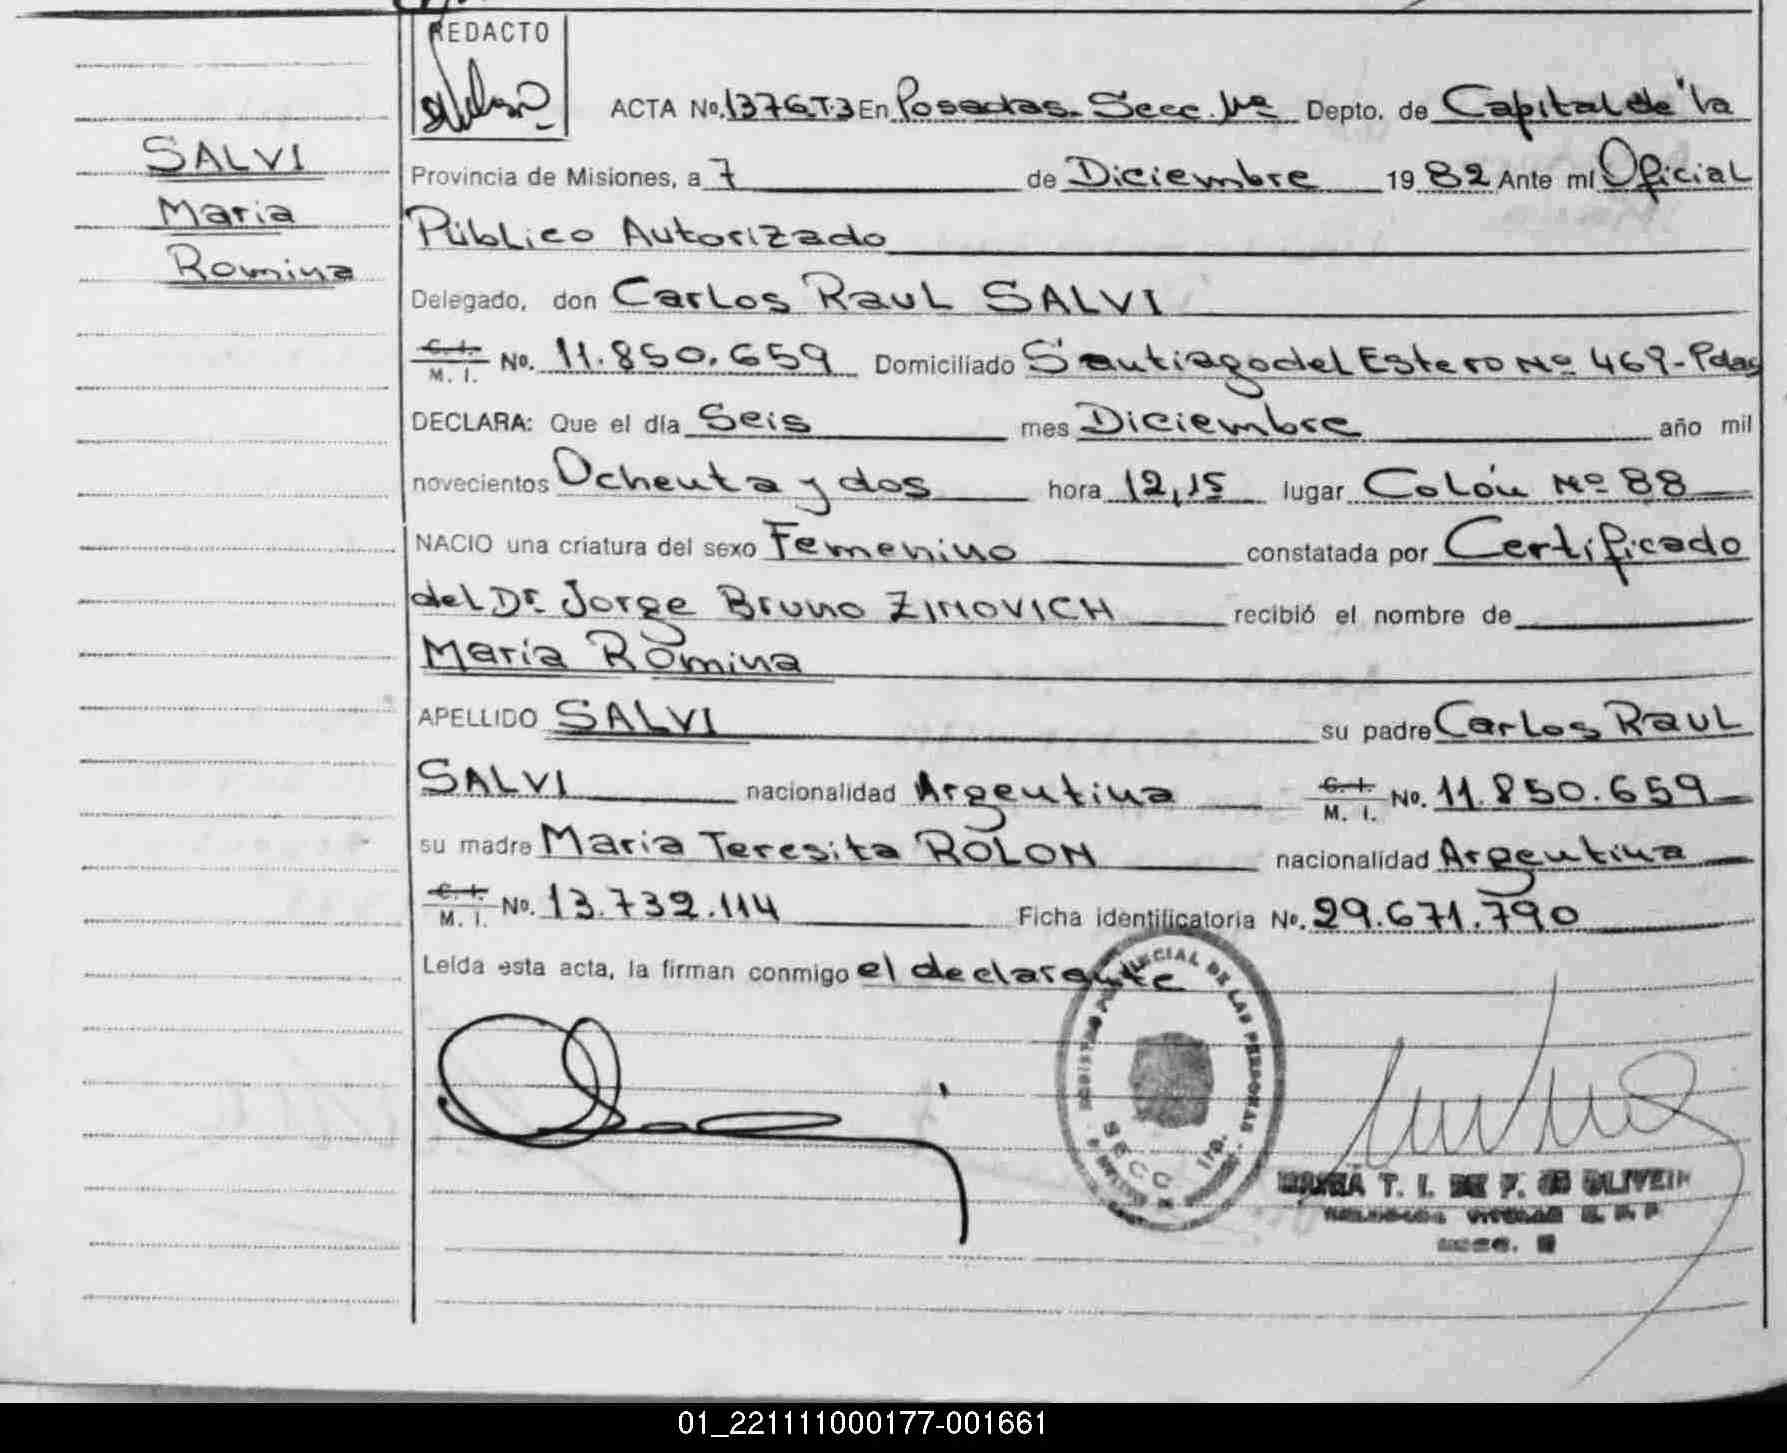 REDACTO
SALVI
Maria
Romina
ACTA No. 1376 T.3 En Posadas. Secc. 1ra Depto. de Capital de la
Provincia de Misiones, a 7 de Diciembre 19 82 Ante mi Oficial
Público Autorizado
Delegado, don Carlos Raul SALVI
C.I. M. I. No. 11.850.659 Domiciliado Santiago del Estero Nº 469-Pdas
DECLARA: Que el día Seis mes Diciembre año mil
novecientos Ochenta y dos hora 12,15 lugar Colón Nº 88
NACIO una criatura del sexo Femenino constatada por Certificado
del Dr. Jorge Bruno ZINOVICH recibió el nombre de
Maria Romina
APELLIDO SALVI su padre Carlos Raul
SALVI nacionalidad Argentina C.I. M. I. No. 11.850.659
su madre Maria Teresita ROLON nacionalidad Argentina
C.I. M. I. No. 13.732.114 Ficha identificatoria No. 29.671.790
Leida esta acta, la firman conmigo el declarante
PROVINCIAL DE LAS PERSONAS
SECC. 1ra.
T. I. DE F. DE OLIVEIR
01_221111000177-001661